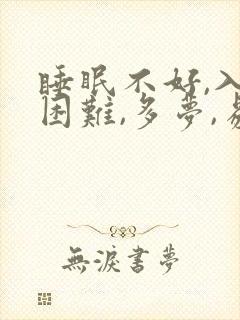 睡眠不好,入
困難,多夢,易
無淚書夢